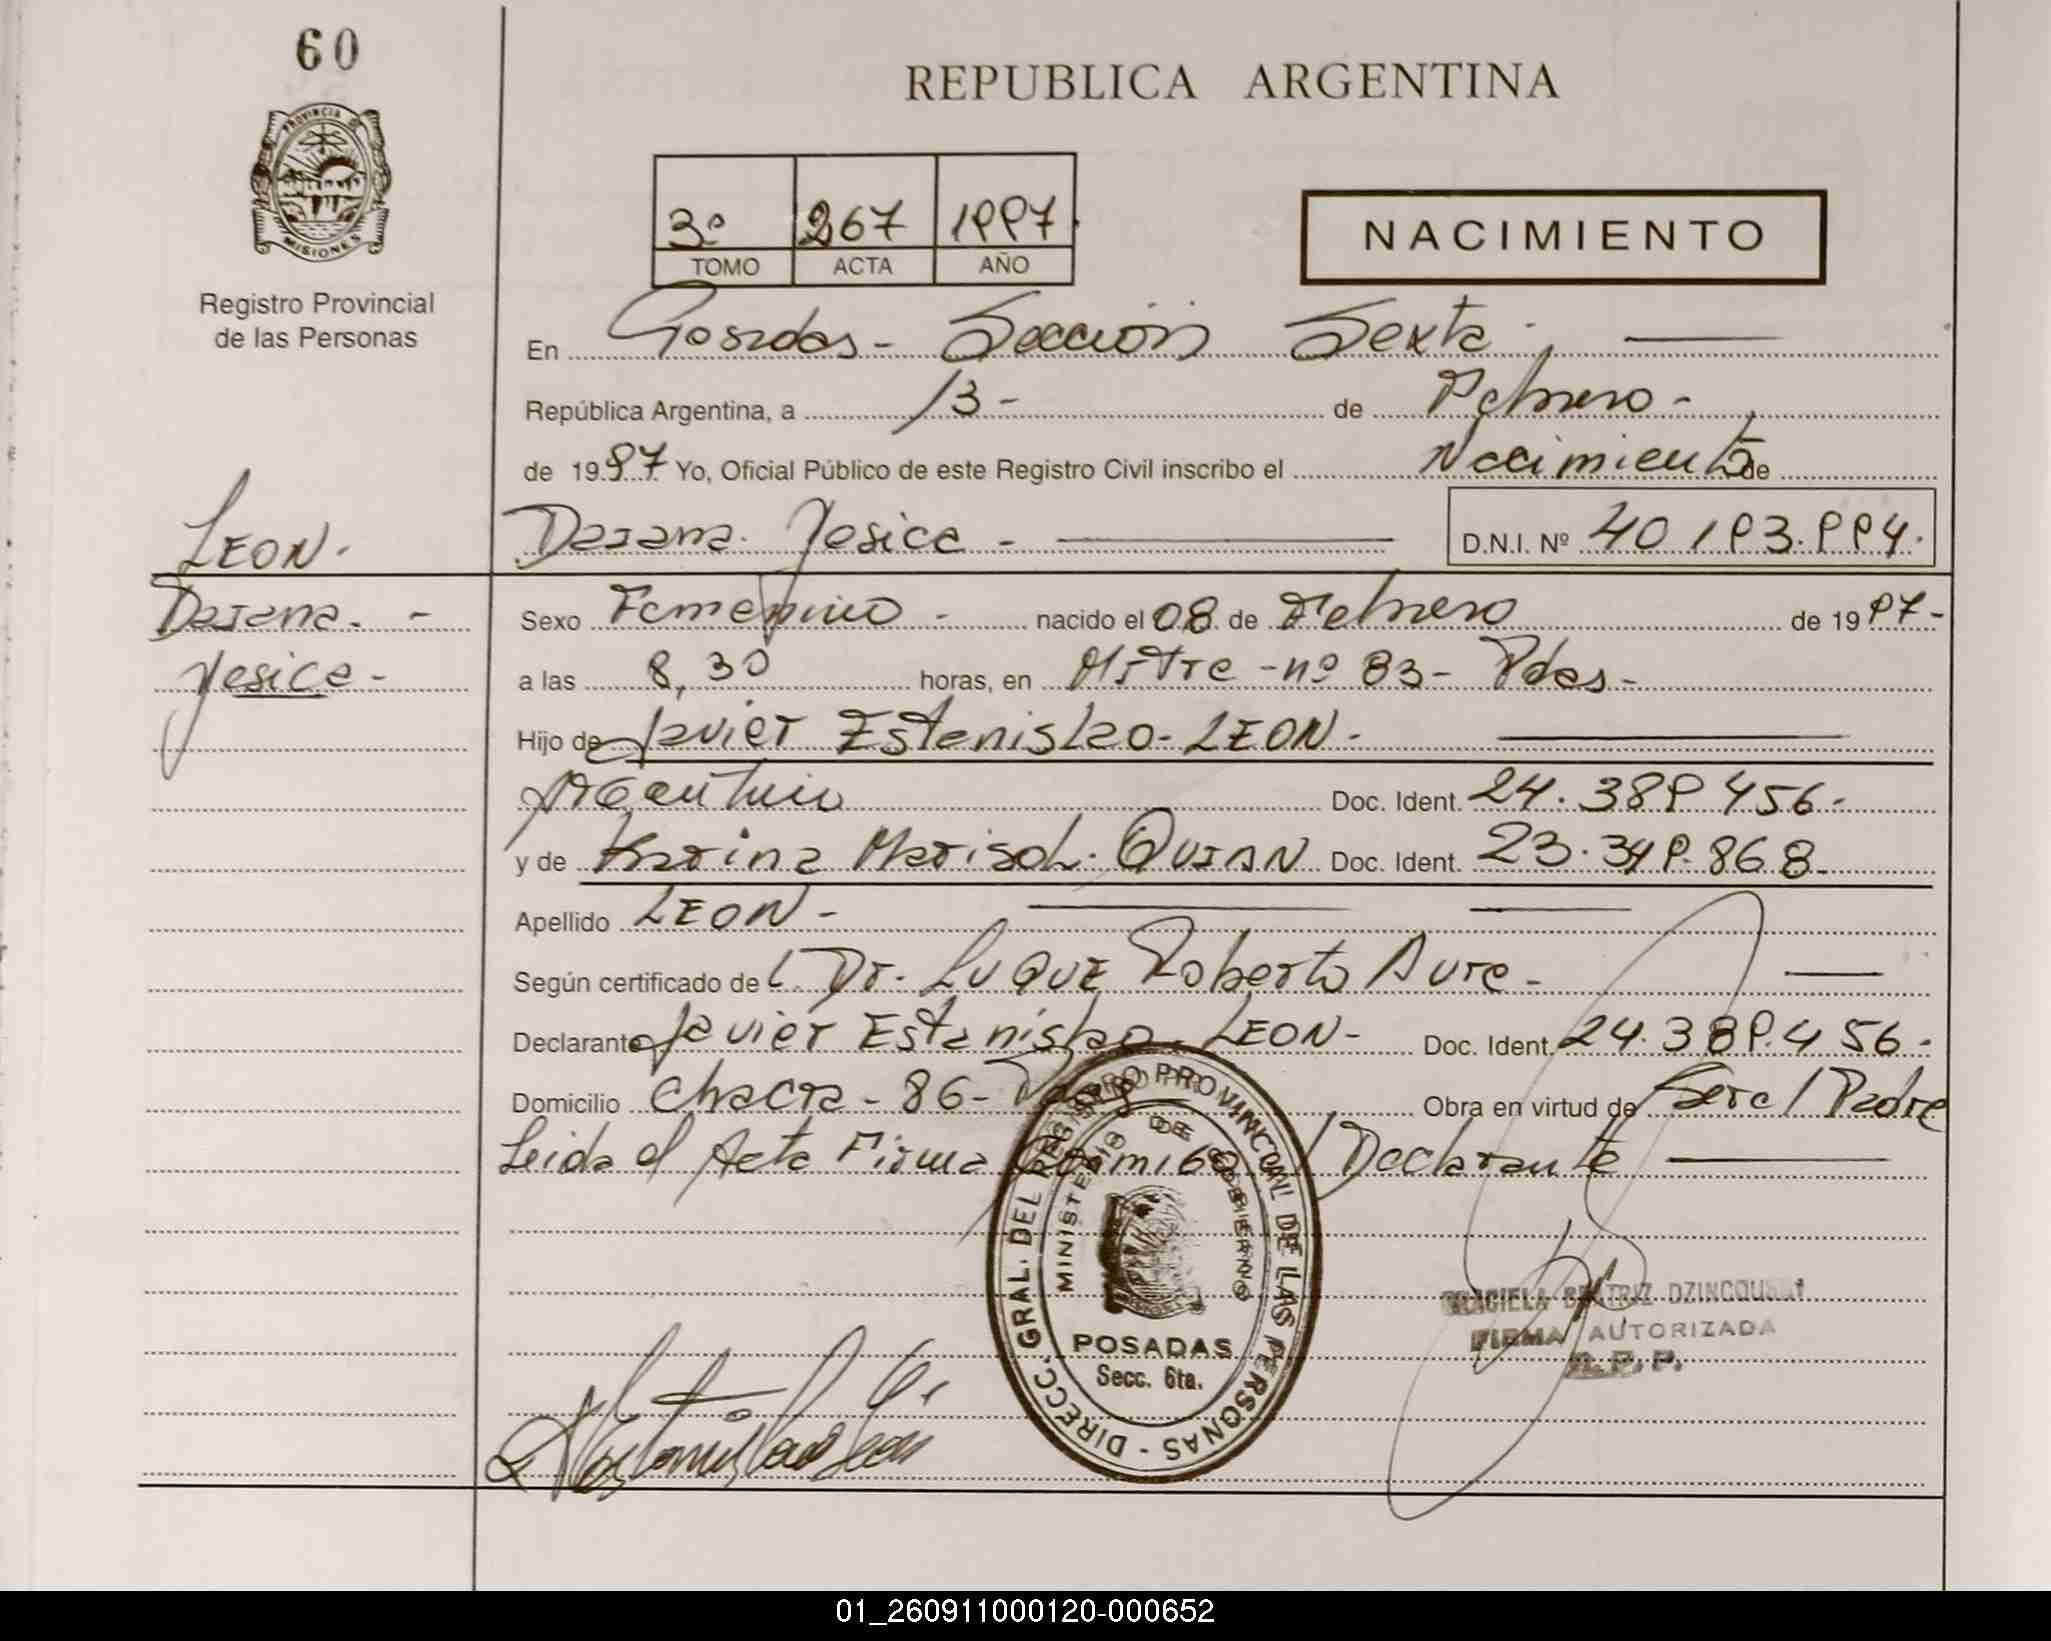 60
REPUBLICA ARGENTINA
PROVINCIA DE
MISIONES
Registro Provincial
de las Personas
3º 267 1997
TOMO ACTA AÑO
NACIMIENTO
En Posadas - Sección Sexta. —
República Argentina, a 13 - de Febrero -
de 1997 Yo, Oficial Público de este Registro Civil inscribo el Nacimiento de
LEON.
Daiana. Yesica - — D.N.I. Nº 40 193.994.
Daiana. -
Yesica -
Sexo Femenino - nacido el 08 de Febrero de 1997 -
a las 8,30 horas, en Mitre - nº 83 - Pdas -
Hijo de Javier Estanislao - LEON. —
Argentino Doc. Ident. 24.389 456 -
y de Karina Marisol. Doc. Ident. 23.349.868 -
Apellido LEON - — —
Según certificado de l. Dr. LUQUE Roberto - —
Declarante Javier Estanislao - LEON - Doc. Ident. 24.389.456 -
Domicilio Chacra - 86 - Obra en virtud de Ser el Padre
Leida el Acta Firma Conmigo el Declarante —
DIRECC. GRAL. DEL REGISTRO PROVINCIAL DE LAS PERSONAS -
MINISTERIO DE GOBIERNO
POSADAS
Secc. 6ta.
GRACIELA BEATRIZ
FIRMA AUTORIZADA
R.P.P.
01_260911000120-000652